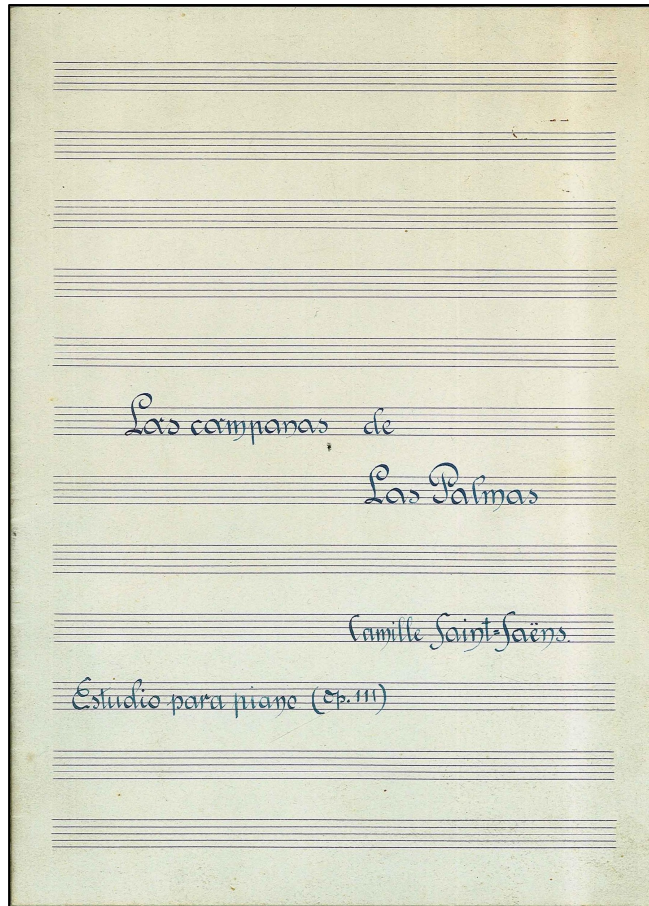 Las campanas de
Las Palmas
Camille Saint=Saëns.
Estudio para piano (Op. 111)